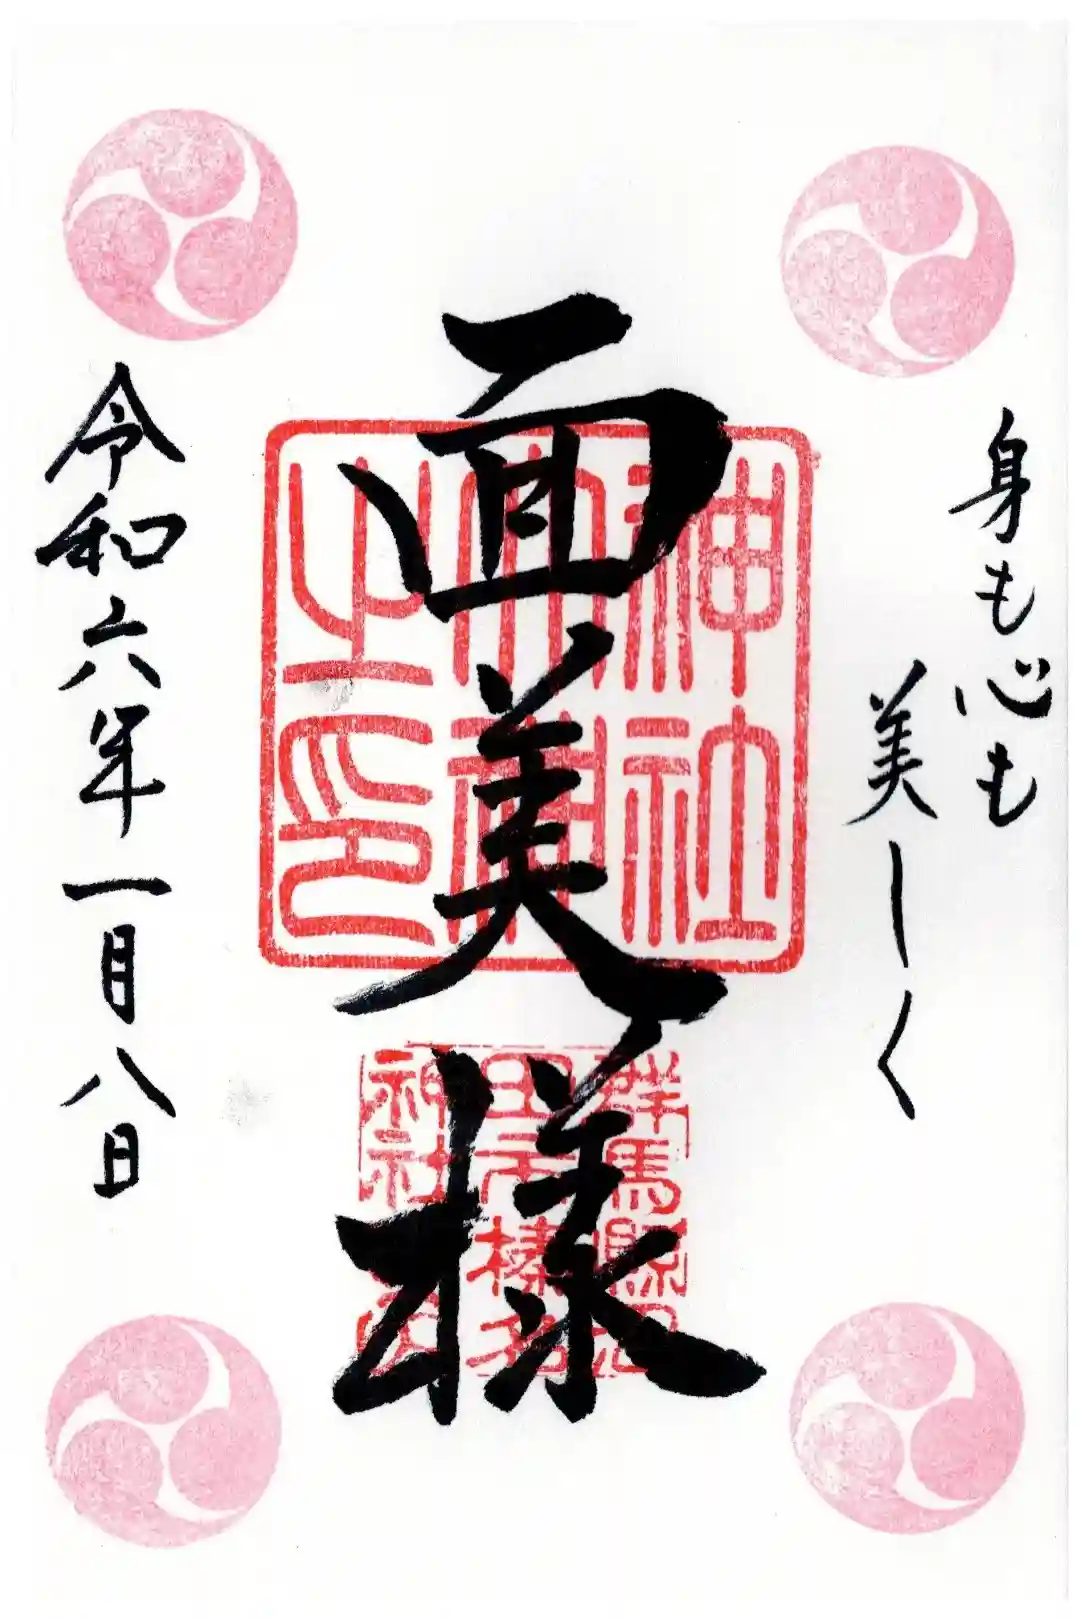 身も心も
美しく
面美様
神社
之印
群馬縣
榛名
神社
令和六年一月八日